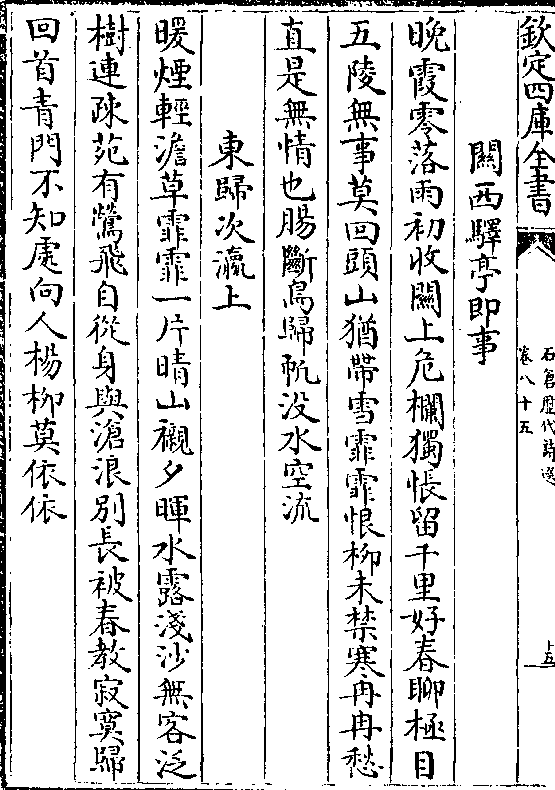 欽定四庫全書
石倉歷代詩選
卷八十五
十五
關西驛亭即事
晚霞零落雨初收關上危欄獨悵留千里好春聊極目
五陵無事莫回頭山猶帶雪霏霏恨柳未禁寒冉冉愁
直是無情也腸斷鳥歸帆没水空流
東歸次瀛上
暖煙輕澹草霏霏一片晴山襯夕暉水露淺沙無客泛
樹連疎苑有鶯飛自從身與滄浪別長被春教寂寞歸
回首青門不知處向人楊柳莫依依